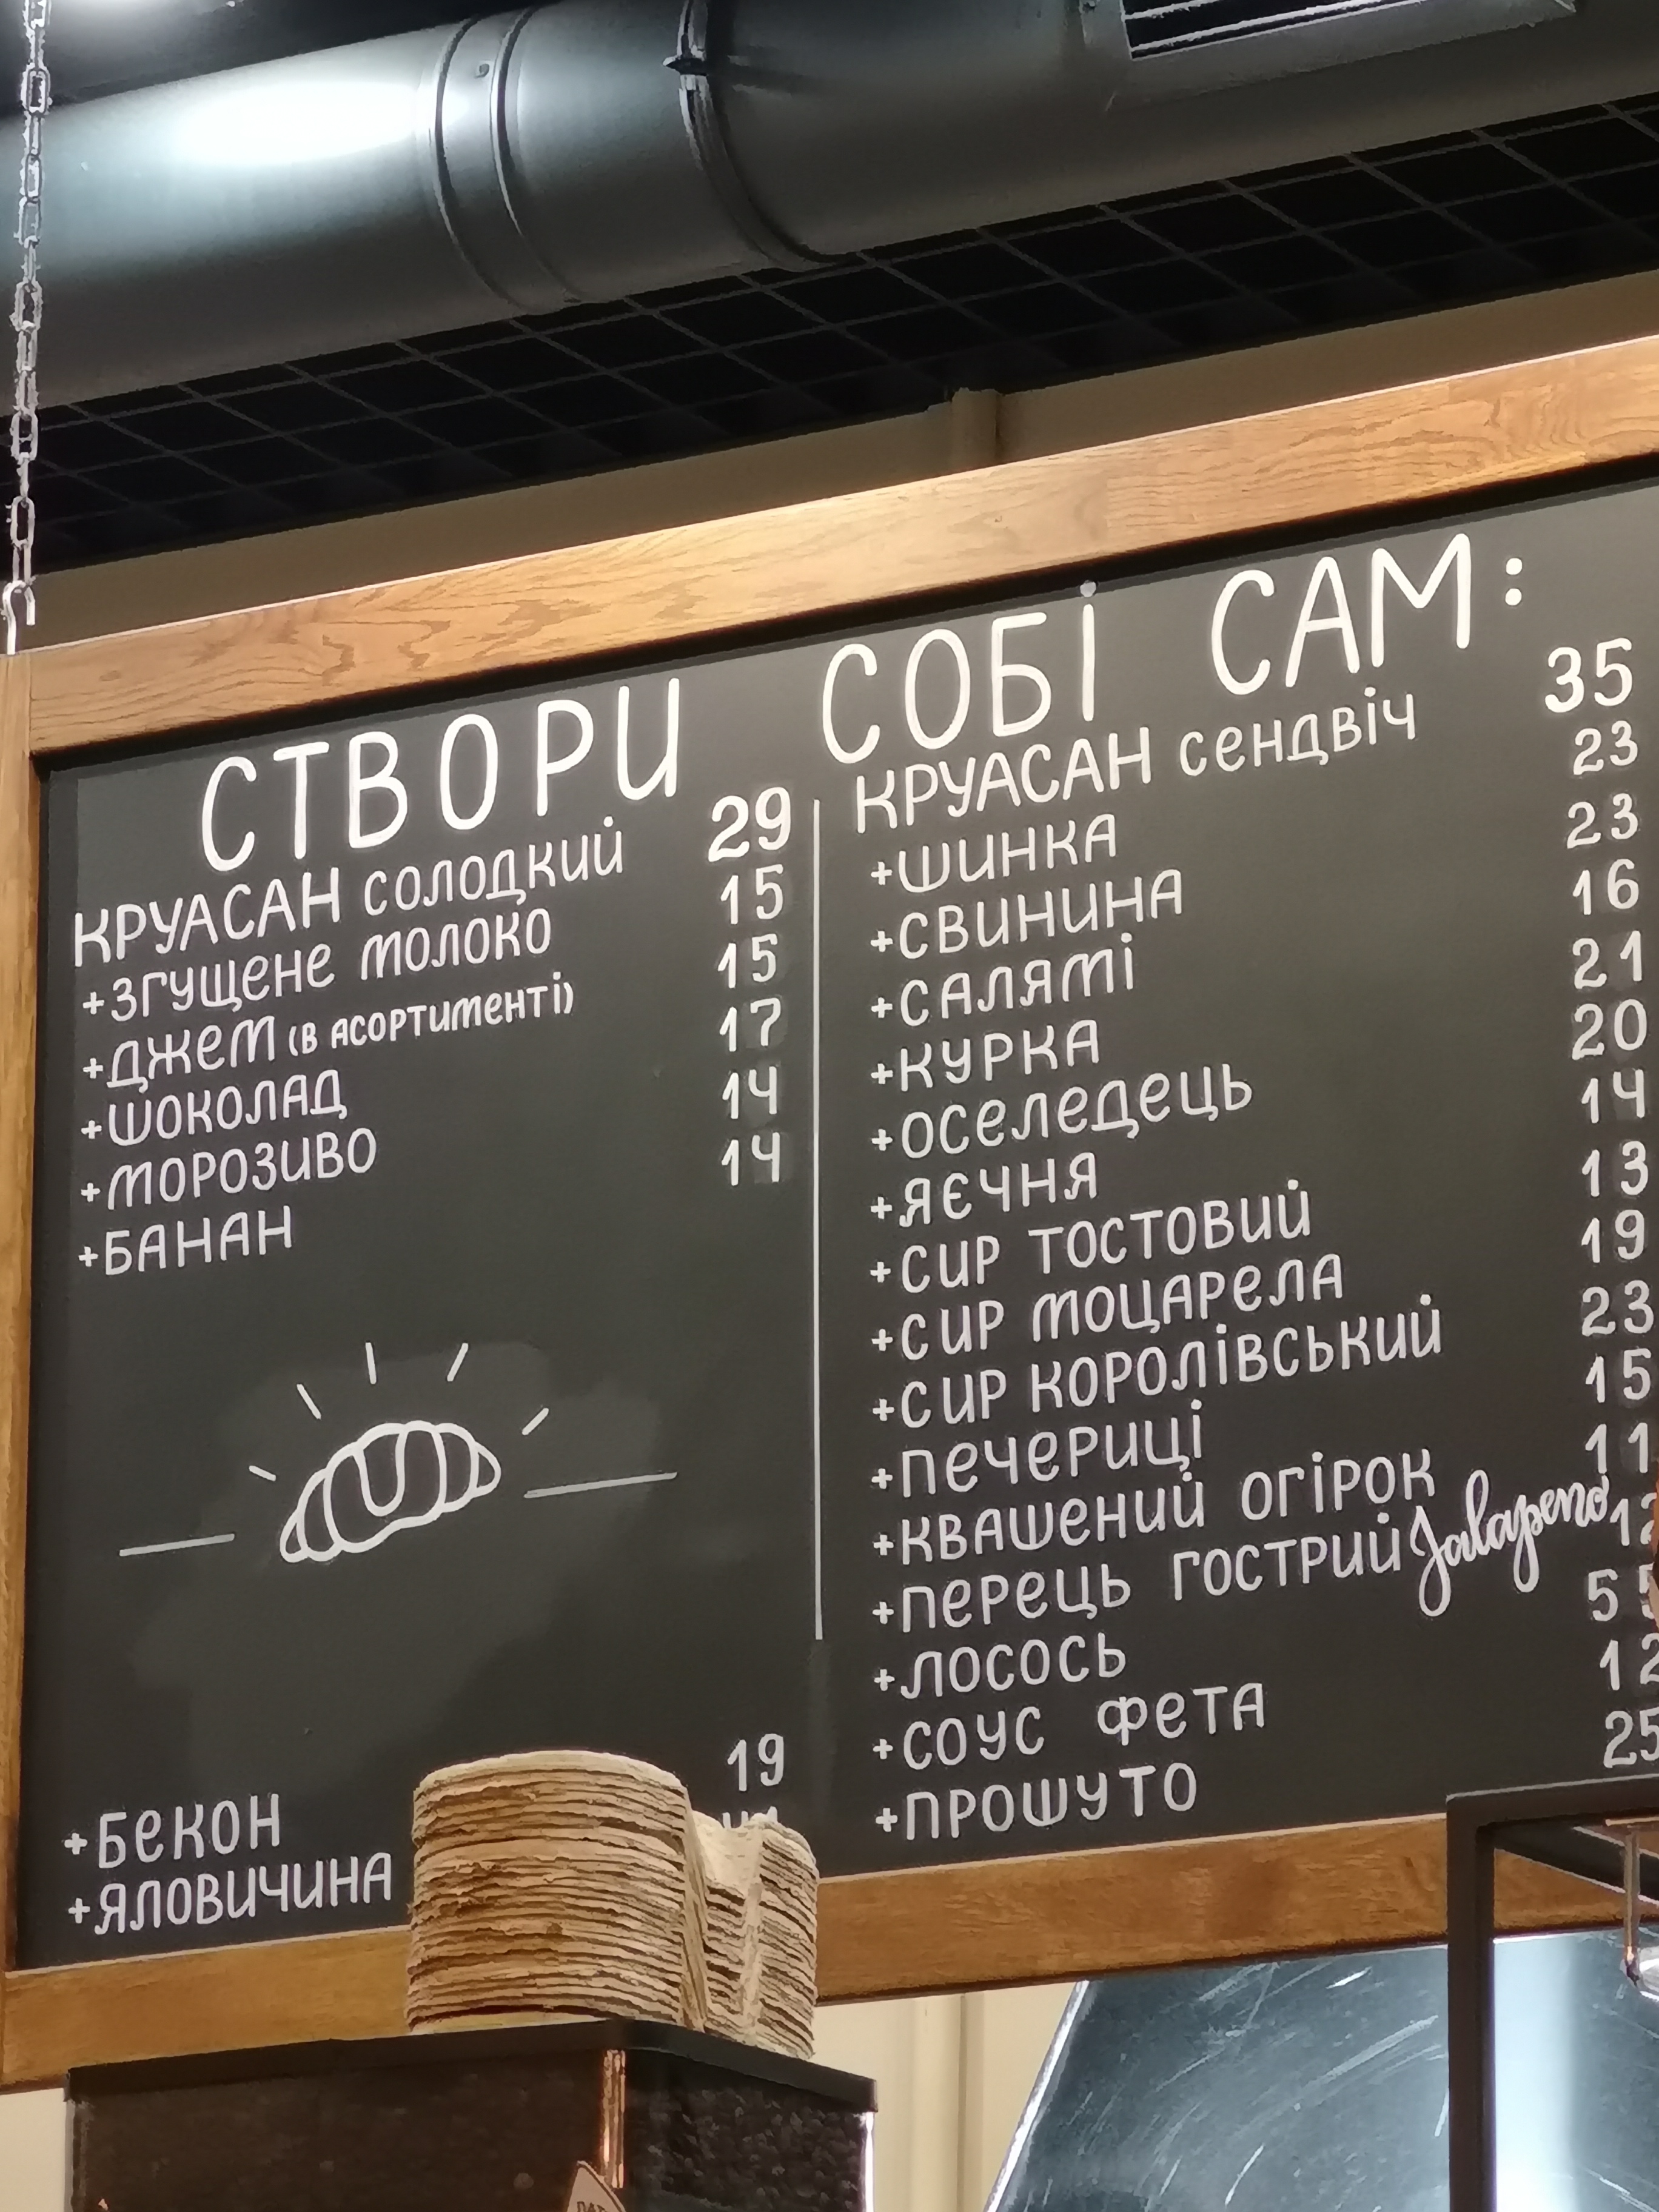 СТВОРИ СОБІ САМ:
КРУАСАН солодкий 29
+ЗГУЩЕНЕ МОЛОКО 15
+ДЖЕМ (В АСОРТИМЕНТІ) 15
+ШОКОЛАД 17
+МОРОЗИВО 14
+БАНАН 14
+БЕКОН 19
+ЯЛОВИЧИНА
КРУАСАН сендвіч 35
+ШИНКА 23
+СВИНИНА 23
+САЛЯМІ 16
+КУРКА 21
+ОСЕЛЕДЕЦЬ 20
+ЯЄЧНЯ 14
+СИР ТОСТОВИЙ 13
+СИР МОЦАРЕЛА 19
+СИР КОРОЛІВСЬКИЙ 23
+ПЕЧЕРИЦІ 15
+КВАШЕНИЙ ОГІРОК 11
+ПЕРЕЦЬ ГОСТРИЙ Jalapeno 12
+ЛОСОСЬ 55
+СОУС ФЕТА 12
+ПРОШУТО 25